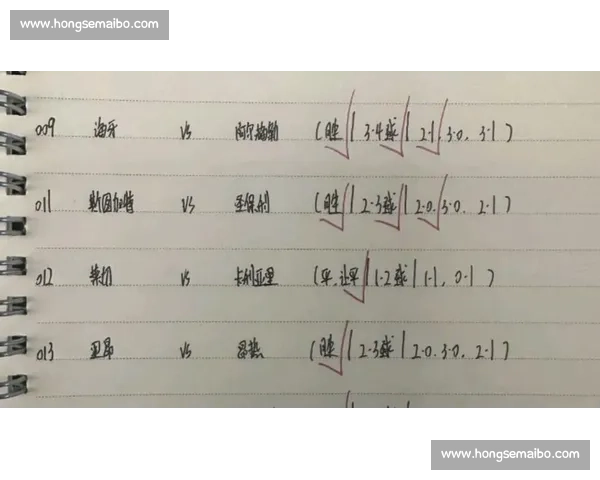 www.hongsemaibo.com
009 海牙 VS 阿尔梅勒 (胜 | 3-4球 | 2-1, 3-0, 3-1)
011 斯图加特 VS 圣保利 (胜 | 2-3球 | 2-0, 3-0, 2-1)
012 莱切 VS 卡利亚里 (平, 让平 | 1-2球 | 1-1, 0-1)
013 里昂 VS 昂热 (胜 | 2-3球 | 2-0, 3-0, 2-1)
www.hongsemaibo.com